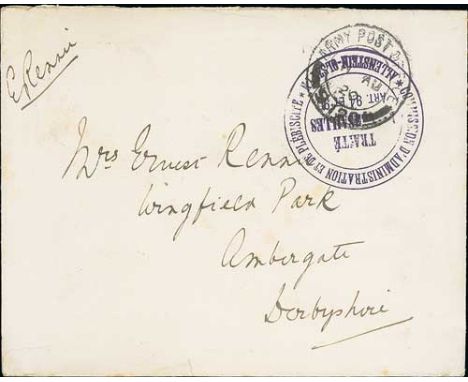 ERennie
ARMY POST
AU
20
COMMISSION D'ADMINISTRATION ET DE PLÉBISCITE * ALLENSTEIN-OLSZ
TRAITÉ
VERSAILLES
ART. 94
Mrs Ernest Rennie
Wingfield Park
Ambergate
Derbyshire